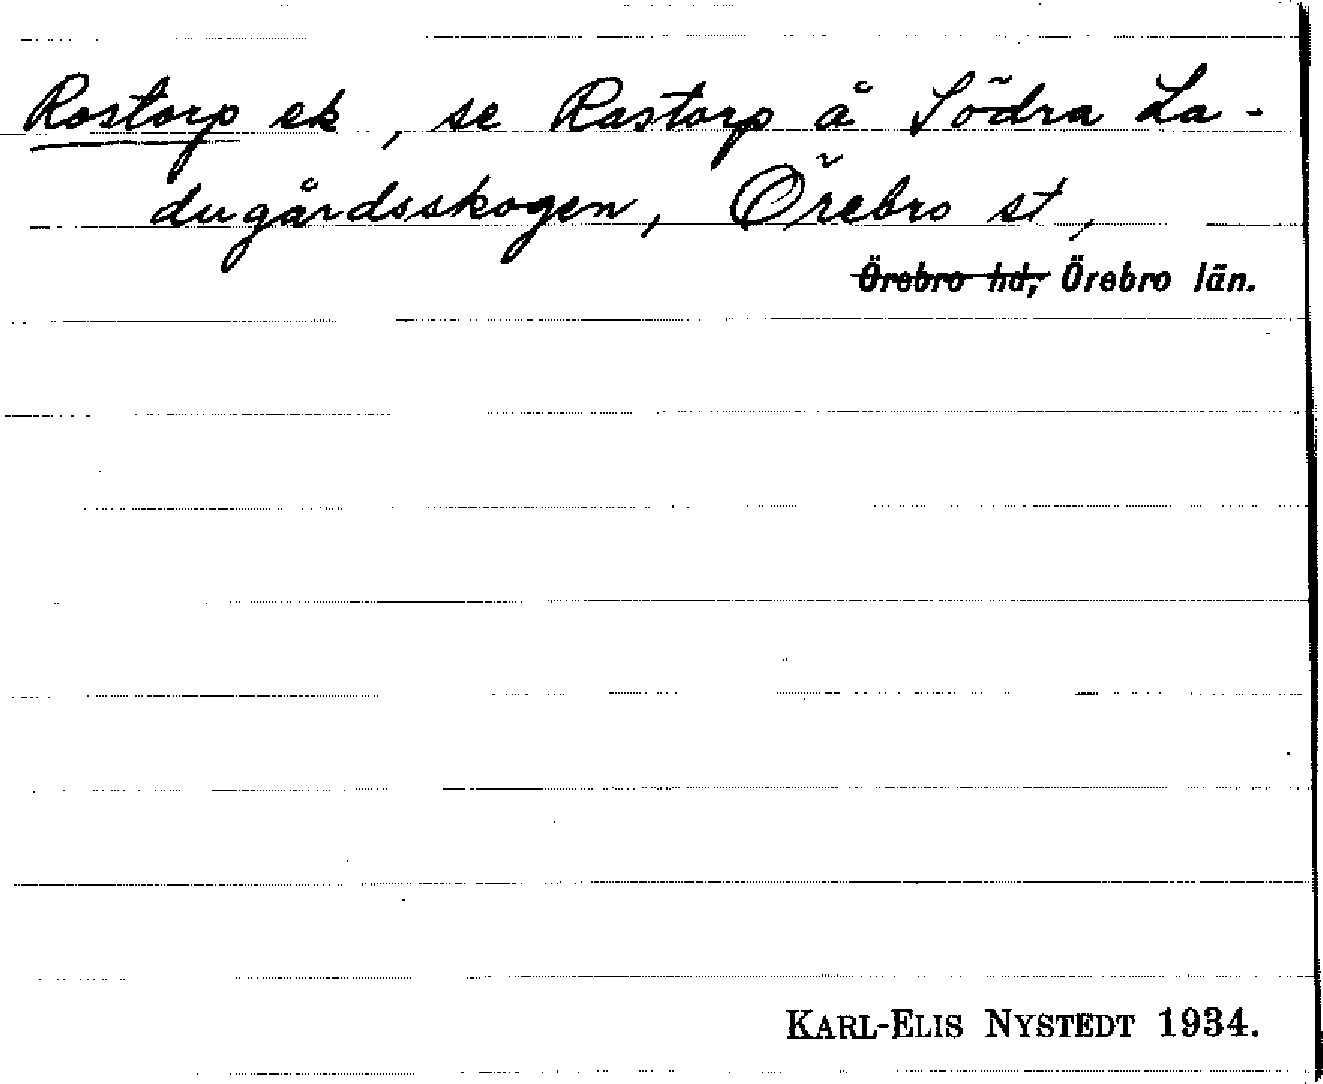 Rostorp ek, se Rastorp å Södra La-
dugårdsskogen, Örebro st,
Örebro hd, Örebro län.
KARL-ELIS NYSTEDT 1934.